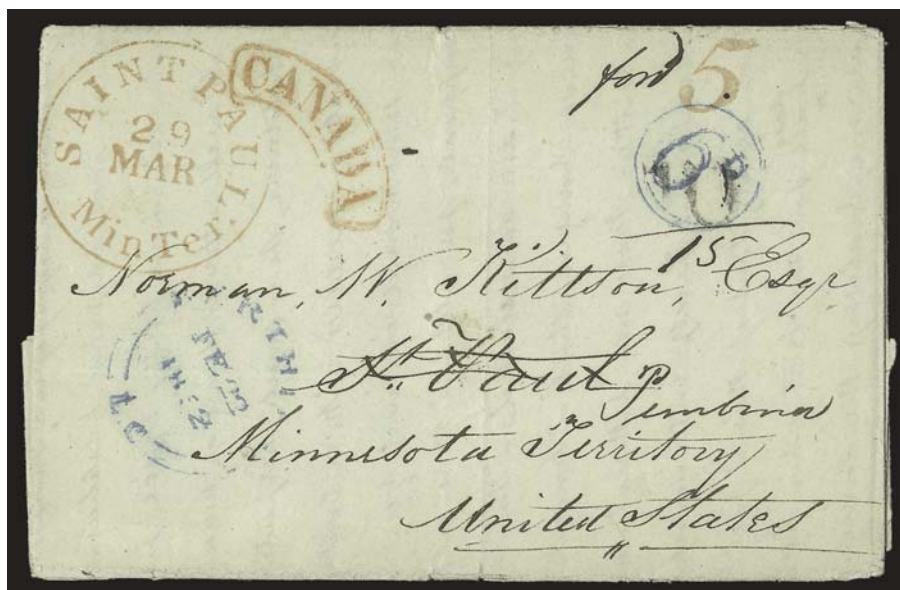 SAINT PAUL
29
MAR
Min Ter.
CANADA
ford 5
10
15
Norman, W. Kittson, Esqr
St. Paul Pembina
Minnesota Territory
United States
FE 23
L.C